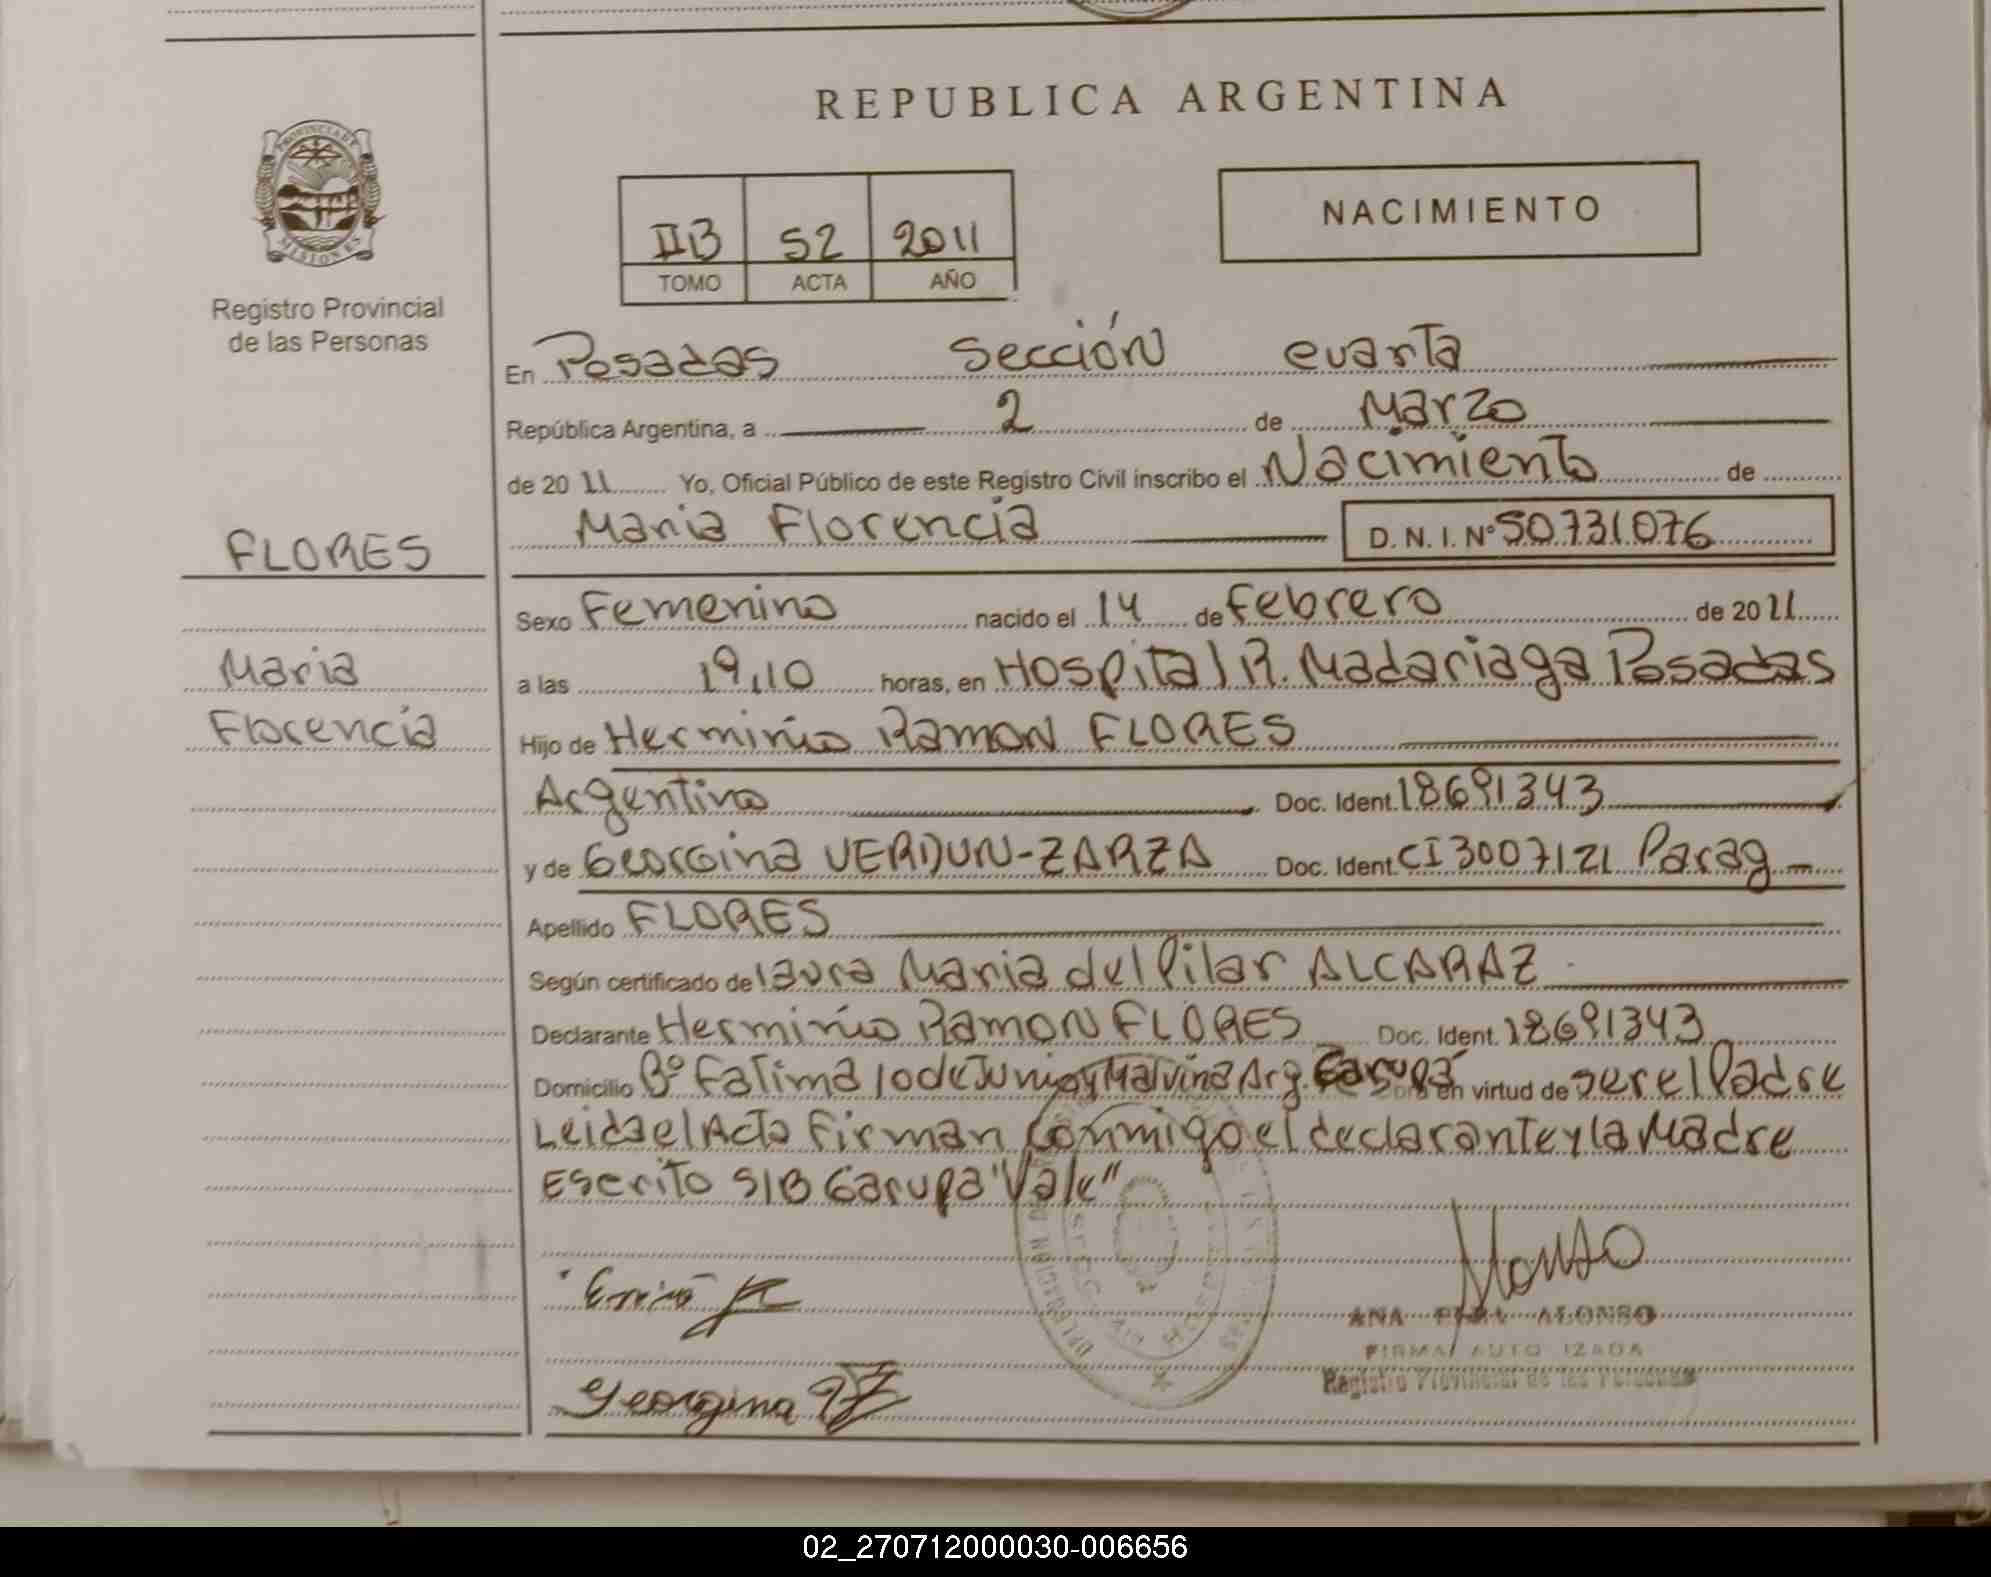 REPUBLICA ARGENTINA
PROVINCIA DE
MISIONES
Registro Provincial
de las Personas
IIB 52 2011
TOMO ACTA AÑO
NACIMIENTO
En Posadas Sección cuarta
República Argentina, a 2 de Marzo
de 2011 Yo, Oficial Público de este Registro Civil inscribo el Nacimiento de
Maria Florencia D. N. I. Nº 50.731.076
FLORES
Maria
Florencia
Sexo Femenino nacido el 14 de Febrero de 2011
a las 19,10 horas, en Hospital R. Madariaga Posadas
Hijo de Herminio Ramon FLORES
Argentino Doc. Ident. 18691343
y de Georgina VERDUN-ZARZA Doc. Ident. CI3007121 Parag
Apellido FLORES
Según certificado de laura Maria del Pilar ALCARAZ
Declarante Herminio Ramon FLORES Doc. Ident. 18691343
Domicilio Bº Fatima 10 de Junio y Malvina Arg. Garupá en virtud de ser el Padre
Leida el Acta Firman Conmigo el declarante y la Madre
Escrito S/B Garupa "Vale"
Georgina
Alonso
ANA ALONSO
FIRMA AUTORIZADA
Registro Provincial de las Personas
02_270712000030-006656